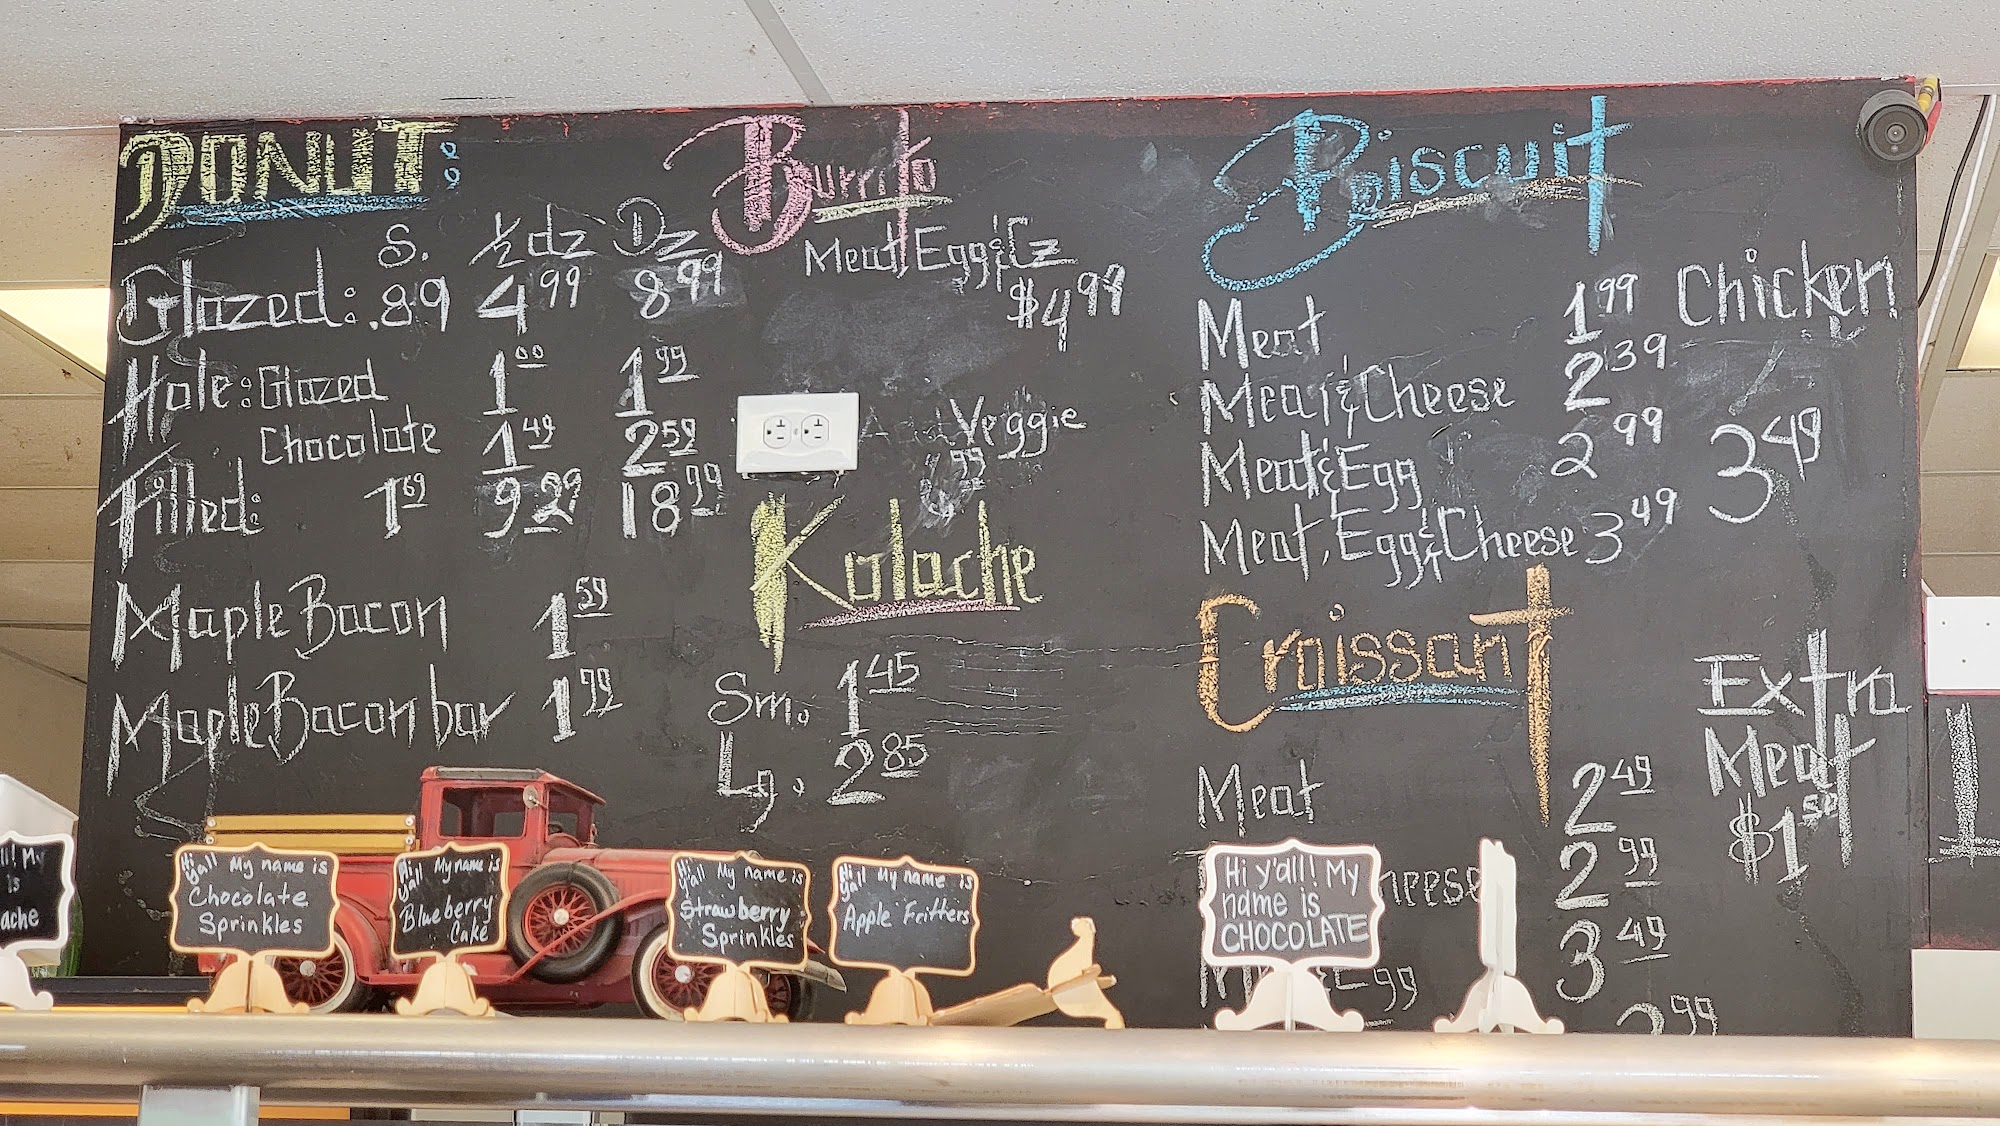 DONUT:
S. ½dz Dz
Glazed: .89 4.99 8.99
Hole: Glazed 1.00 1.99
Chocolate 1.49 2.59
Filled: 1.69 9.29 18.99
Maple Bacon 1.59
Maple Bacon bar 1.99
Burrito
Meat, Egg & Cz
$4.99
Veggie
Kolache
Sm. 1.45
Lg. 2.85
Biscuit
Meat 1.99
Meat & Cheese 2.39
Meat & Egg 2.99
Meat, Egg & Cheese 3.49
Chicken
3.49
Croissant
Meat 2.49
2.99
3.49
Extra
Meat
$1.50
Hi y'all My name is
Chocolate
Sprinkles
Hi y'all My name is
Blueberry
Cake
Hi y'all My name is
Strawberry
Sprinkles
Hi y'all My name is
Apple Fritters
Hi y'all! My
name is
CHOCOLATE